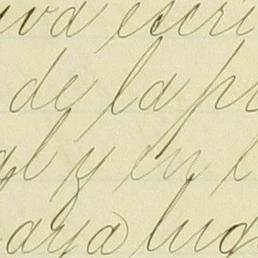 iva escri
de la pr
al y en l
aya lug